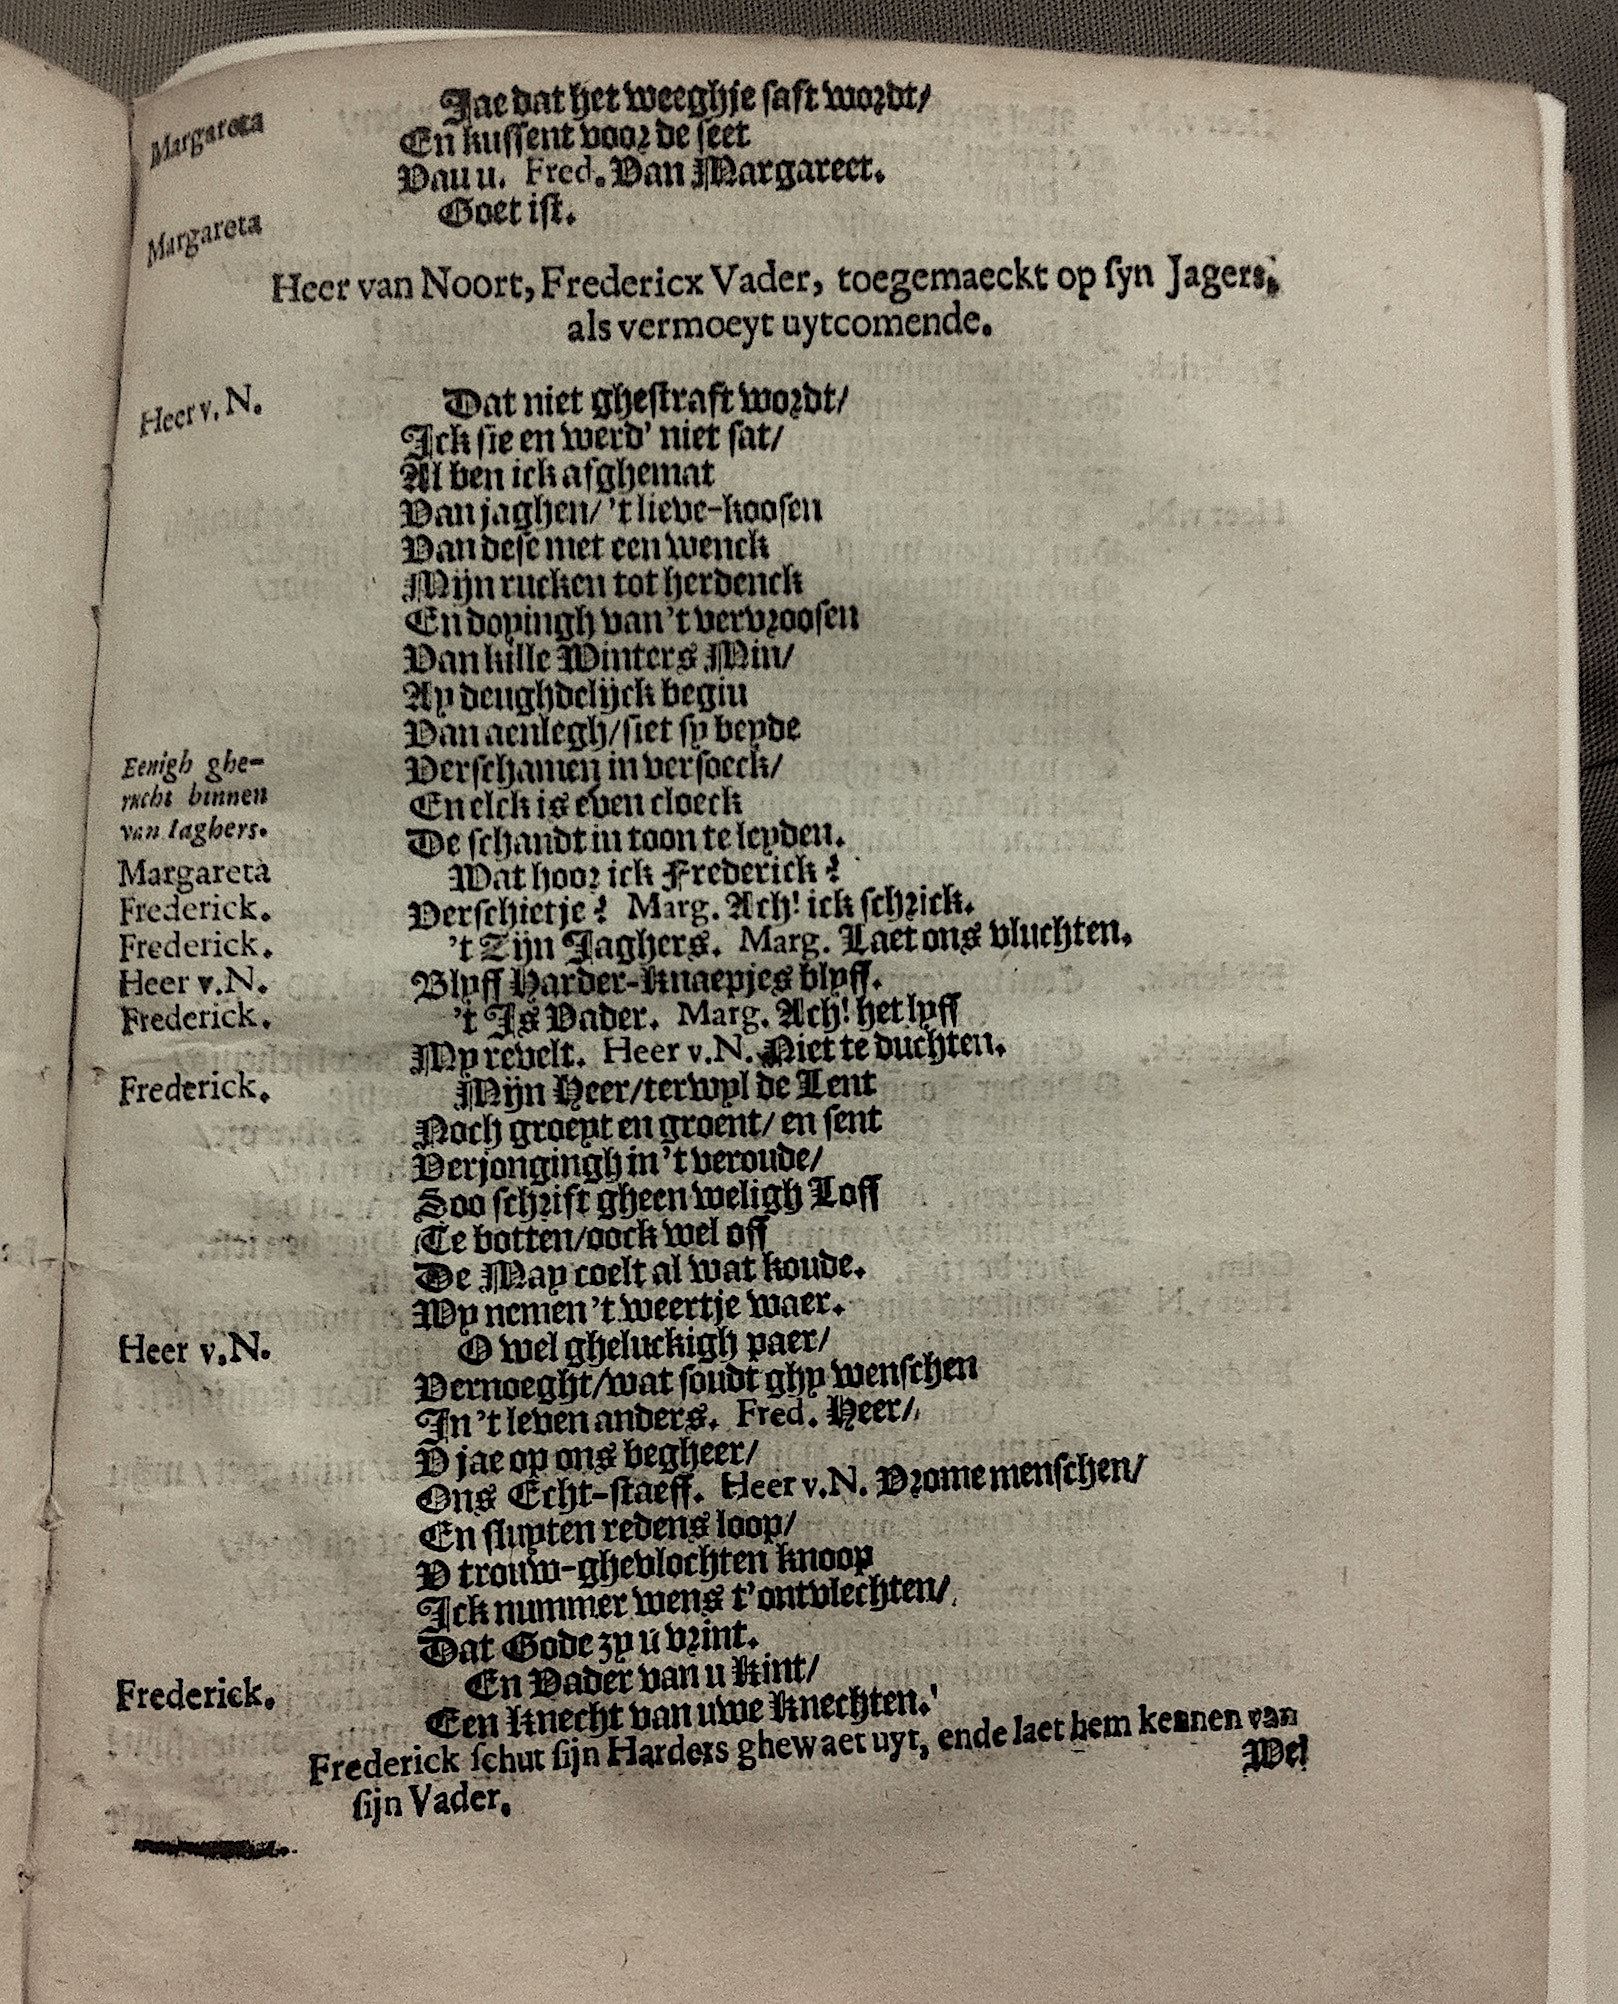 Margareta Jae dat het weeghje saft wordt/
En kussent voor de seet
Vau u. Fred. Van Margareet.
Margareta Goet ist.
Heer van Noort, Fredericx Vader, toegemaeckt op syn Jagers,
als vermoeyt uytcomende.
Heer v. N. Dat niet ghestraft wordt/
Ick sie en werd' niet sat/
Al ben ick afghemat
Van jaghen/ 't lieve-koosen
Van dese met een wenck
Mijn rucken tot herdenck
En doyingh van 't vervroosen
Van kille Winters Min/
Ay deughdelijck begin
Van aenlegh/ siet sy beyde
Eenigh ghe- Verschamen in versoeck/
rucht binnen En elck is even cloeck
van Iaghers. De schandt in toon te leyden.
Margareta Wat hoor ick Frederick?
Frederick. Verschietje? Marg. Ach! ick schrick.
Frederick. 't Zijn Jaghers. Marg. Laet ons vluchten.
Heer v.N. Blyff Harder-knaepjes blyff.
Frederick. 't Is Vader. Marg. Ach! het lyff
My revelt. Heer v.N. Niet te duchten.
Frederick. Mijn Heer/ terwyl de Lent
Noch groeyt en groent/ en sent
Verjongingh in 't veroude/
Soo schrift gheen weligh Loff
Te botten/ oock wel off
De May coelt al wat koude.
Wy nemen 't weertje waer.
Heer v.N. O wel gheluckigh paer/
Vernoeght/ wat soudt ghy wenschen
In 't leven anders. Fred. Heer/
V jae op ons begheer/
Ons Echt-staeff. Heer v.N. Vrome menschen/
En sluyten redens loop/
V trouw-ghevlochten knoop
Ick nummer wens t'ontvlechten/
Dat Gode zy u vrint.
Frederick. En Vader van u Kint/
Een knecht van uwe Knechten.
Frederick schut sijn Harders ghewaet uyt, ende laet hem kennen van
sijn Vader.
Wel